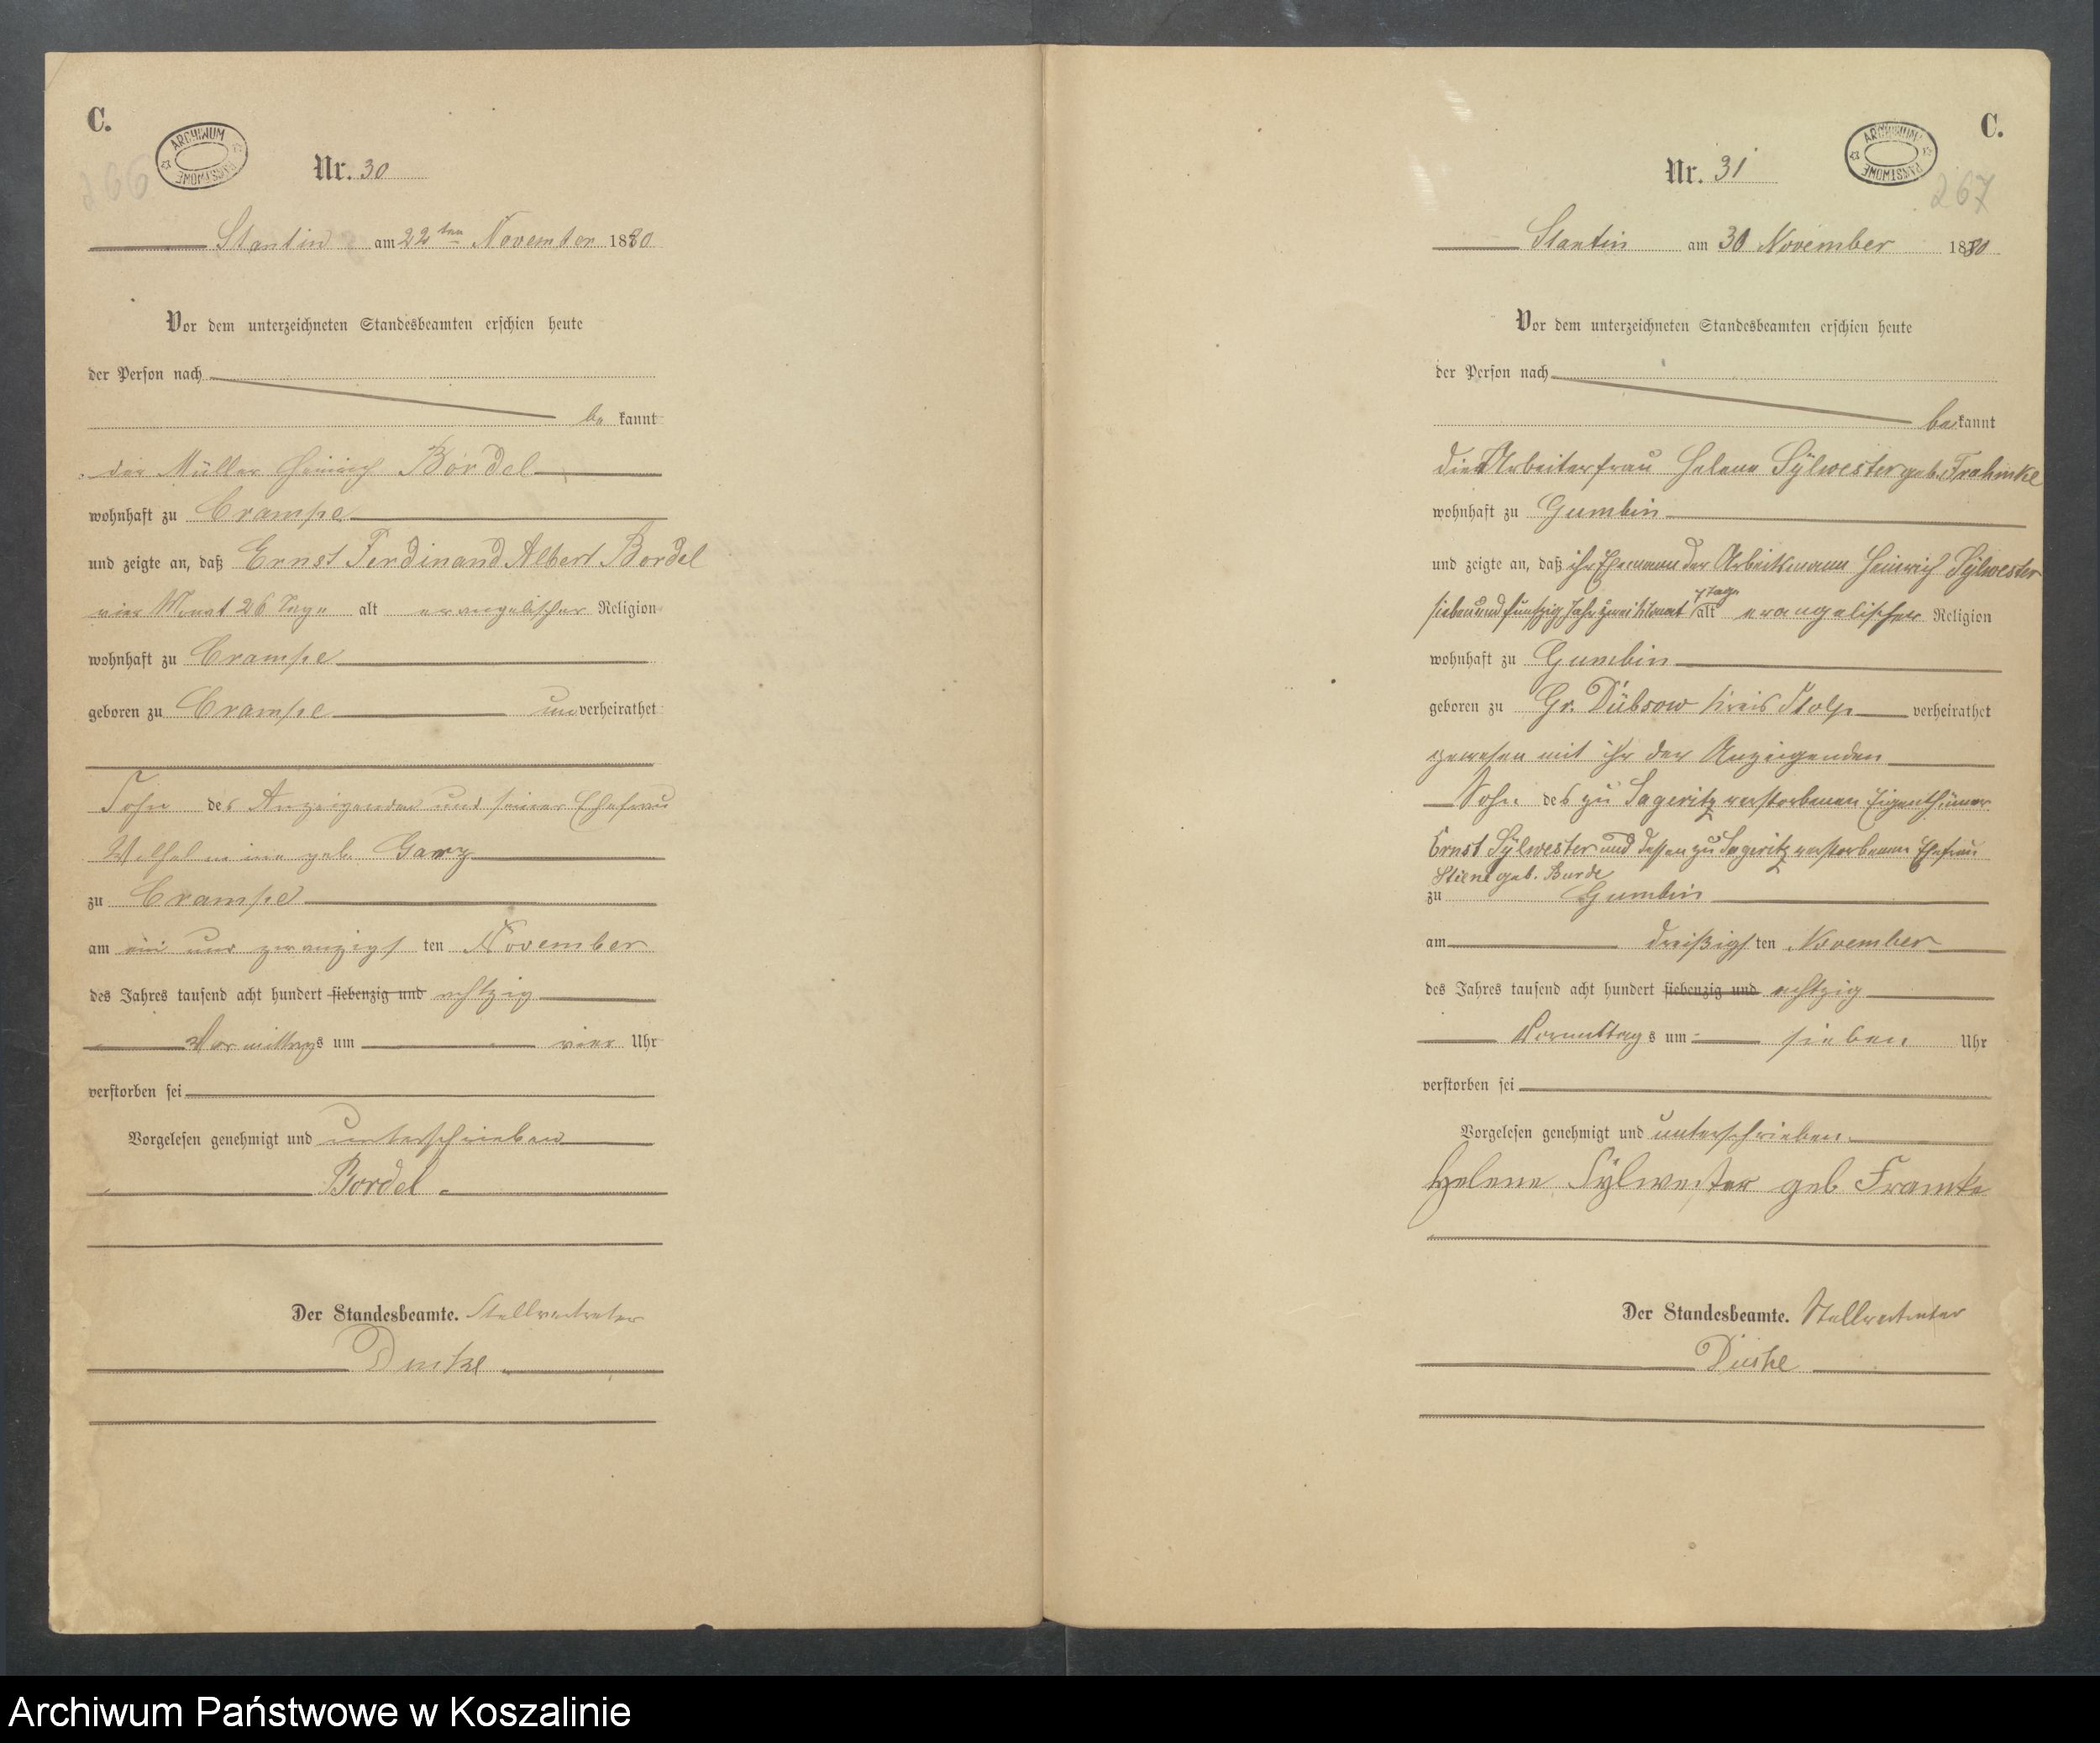 C.
ARCHIWUM PAŃSTWOWE
266
Nr. 30
Stantin am 22ten November 1880
Vor dem unterzeichneten Standesbeamten erschien heute
der Person nach
be kannt
der Müller Heinrich Bordel
wohnhaft zu Crampe
und zeigte an, daß Ernst Ferdinand Albert Bordel
vier Monat 26 Tage alt evangelischer Religion
wohnhaft zu Crampe
geboren zu Crampe unverheirathet
Sohn des Anzeigenden und seiner Ehefrau
Wilhelmine geb. Garz
zu Crampe
am ein und zwanzigsten November
des Jahres tausend acht hundert siebenzig und achtzig
Vormittags um vier Uhr
verstorben sei
Vorgelesen genehmigt und unterschrieben
Bordel
Der Standesbeamte. Stellvertreter
C.
ARCHIWUM PAŃSTWOWE
267
Nr. 31
Stantin am 30 November 1880
Vor dem unterzeichneten Standesbeamten erschien heute
der Person nach
bekannt
die Arbeiterfrau Helene Sÿlwester geb. Frahmke
wohnhaft zu Gumbin
und zeigte an, daß ihr Ehemann der Arbeitsmann Heinrich Sÿlwester
7 Tage
sieben und funfzig Jahr zwei Monat alt evangelischer Religion
wohnhaft zu Gumbin
geboren zu Gr. Dübsow Kreis Stolp verheirathet
gewesen mit ihr der Anzeigenden
Sohn des zu Sageritz verstorbenen Eigenthümer
Ernst Sÿlwester und dessen zu Sageritz verstorbenen Ehefrau
Stiene geb. Burde
zu Gumbin
am dreißigsten November
des Jahres tausend acht hundert siebenzig und achtzig
Vormittags um sieben Uhr
verstorben sei
Vorgelesen genehmigt und unterschrieben.
Helene Sÿlwester geb Framke
Der Standesbeamte. Stellvertreter
Archiwum Państwowe w Koszalinie